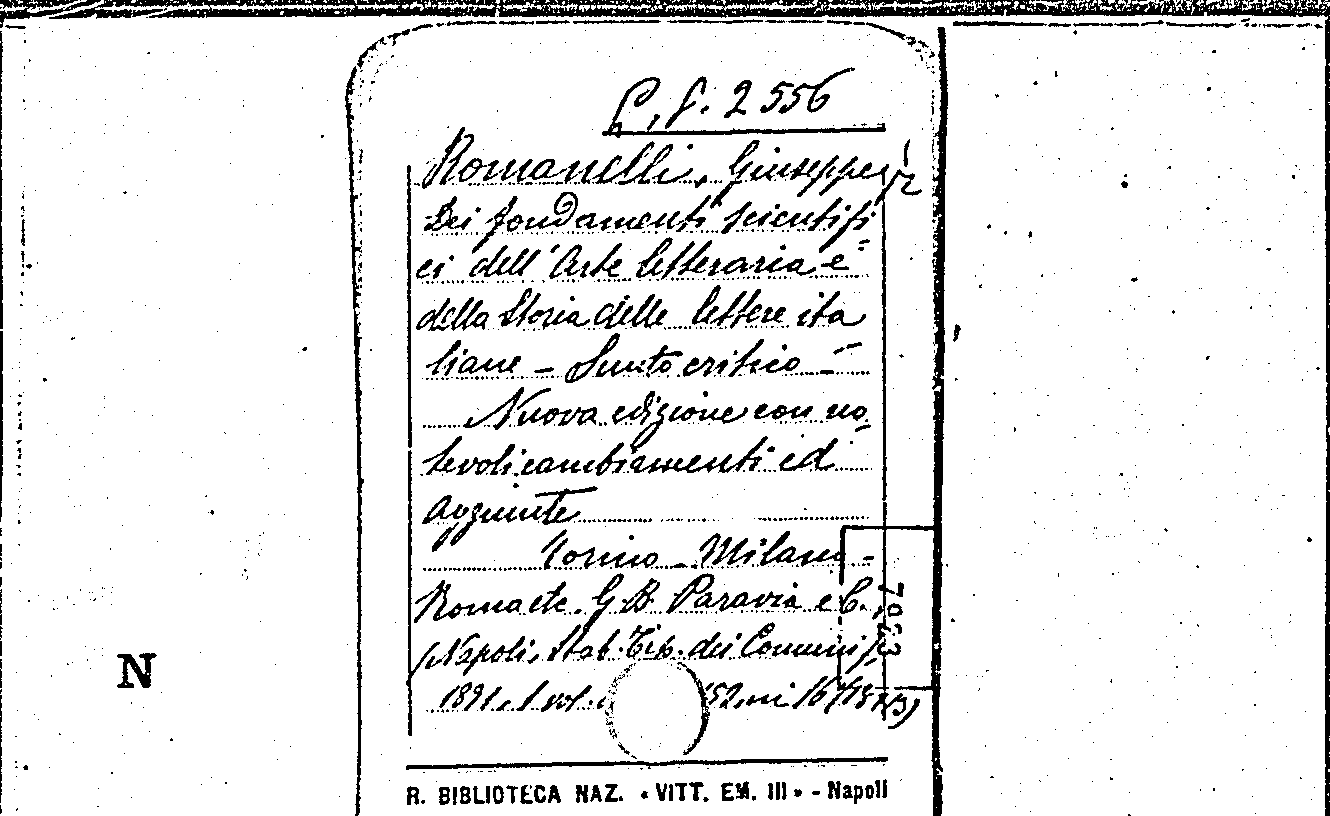 P. f. 2556
Romanelli, Giuseppe
Dei fondamenti scientifi=
ci dell'Arte letteraria e
della Storia delle lettere ita
liane - Sunto critico -
Nuova edizione con no=
tevoli cambiamenti ed
aggiunte
Torino - Milano -
Roma etc. G. B. Paravia e C.
(Napoli, Stab. Tip. dei Comuni),
1891, 1 vol. 152, in 16°
N
R. BIBLIOTECA NAZ. « VITT. EM. III » - Napoli